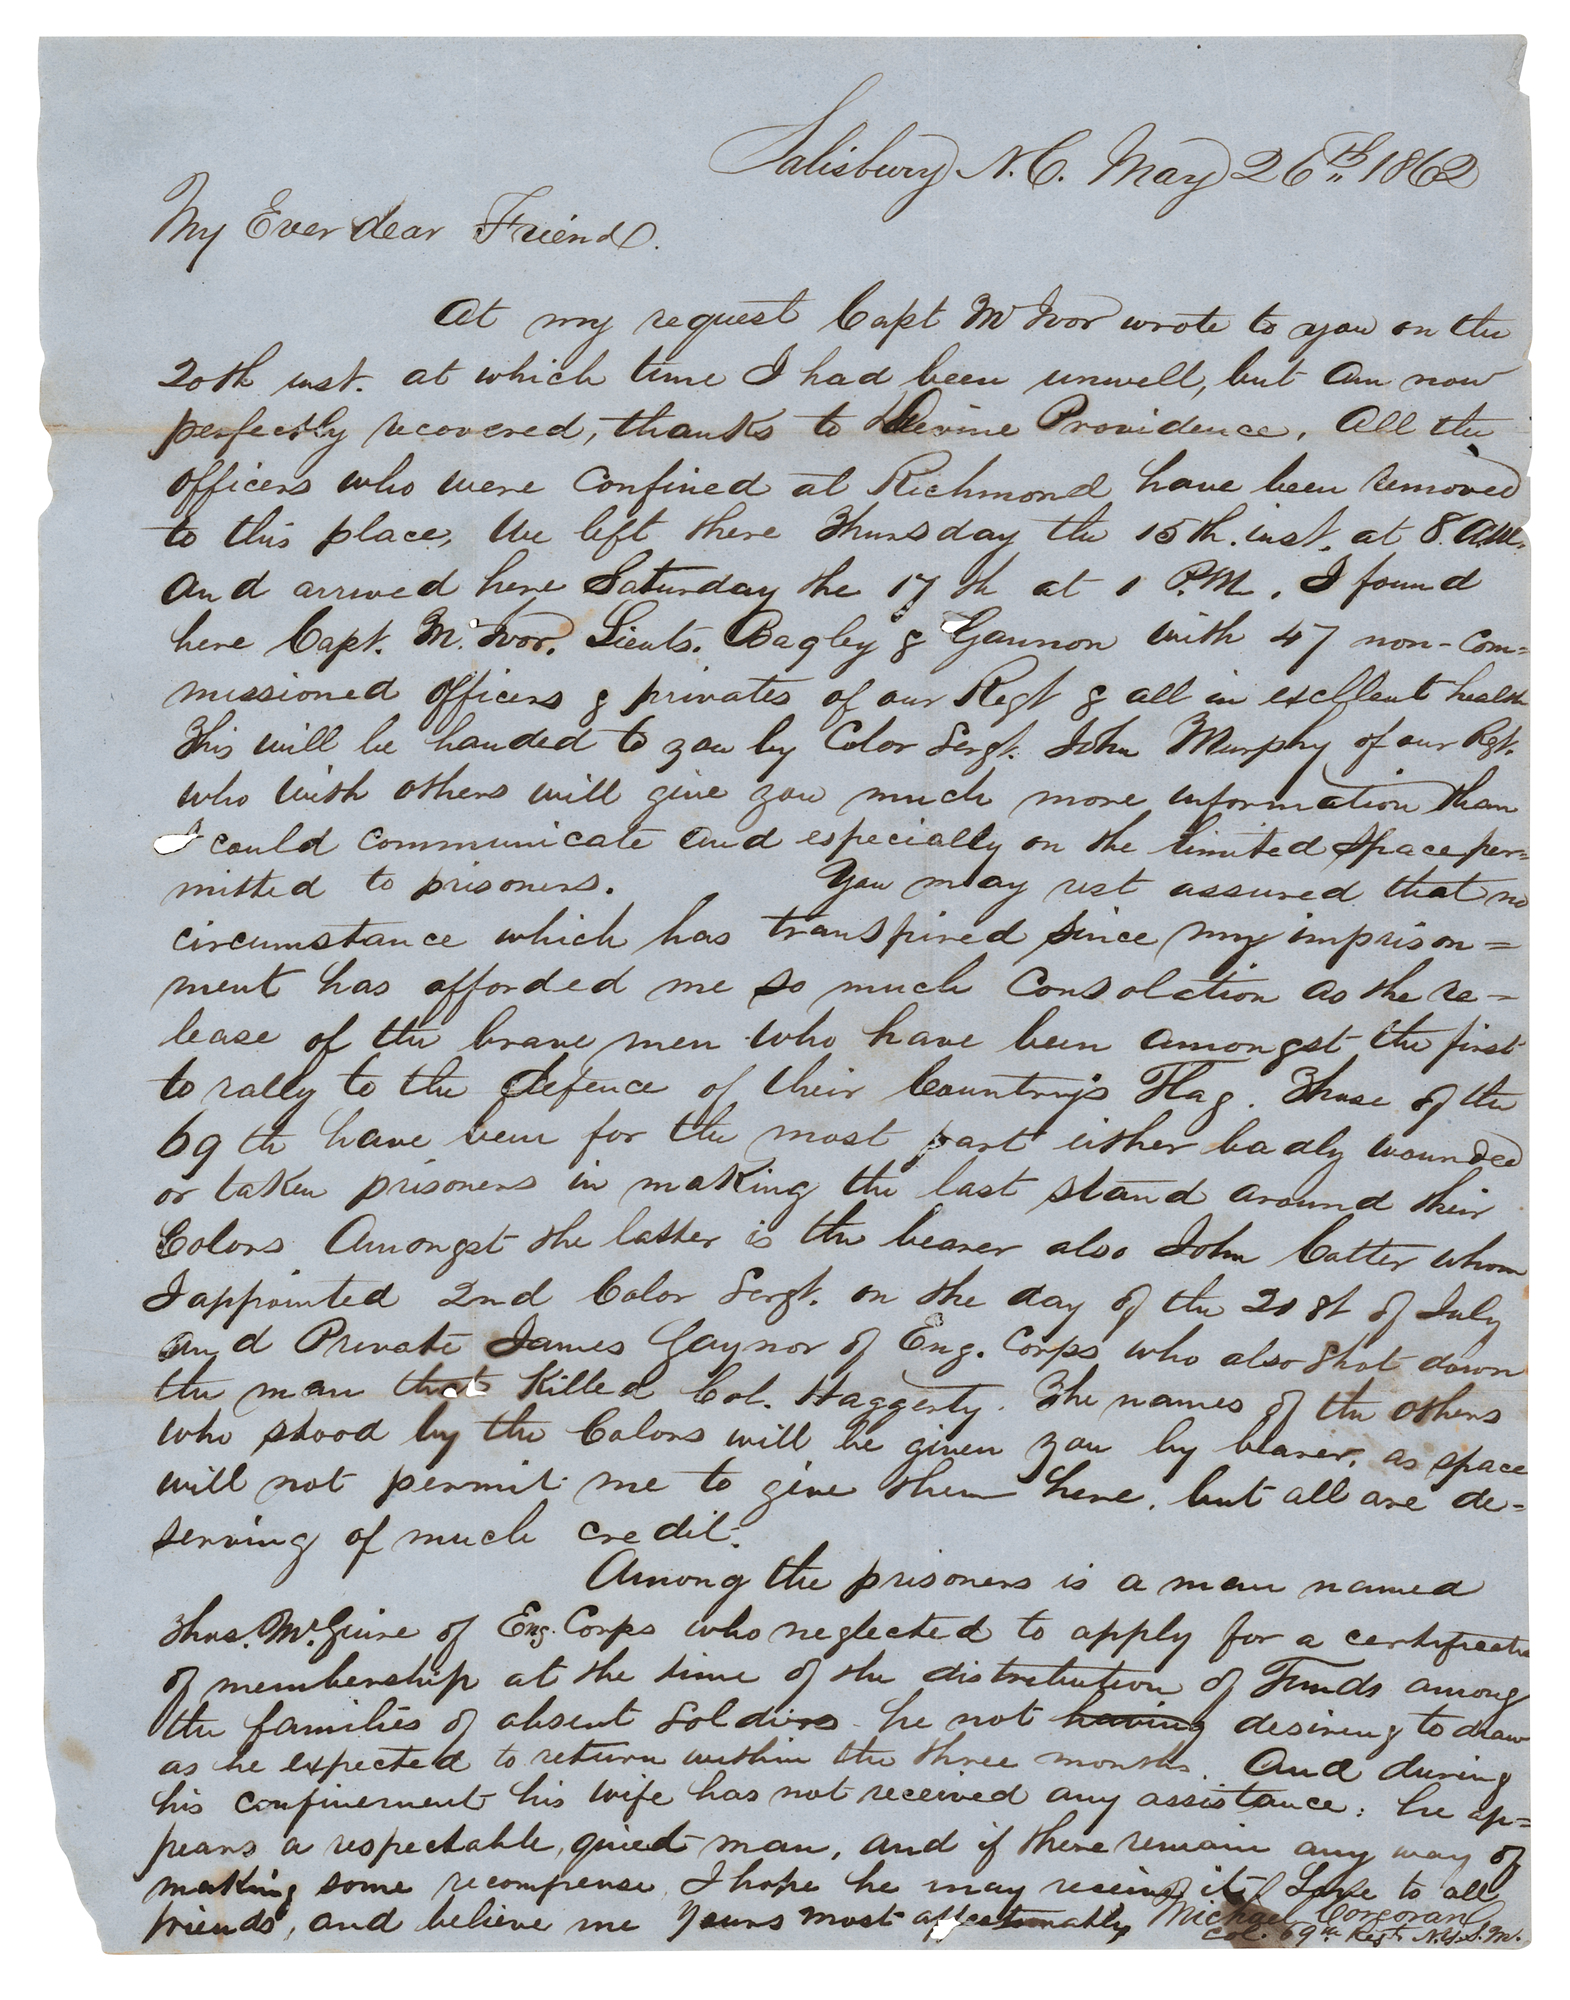 Salisbury N.C. May 26th 1862
My Ever dear Friend.
At my request Capt McIvor wrote to you on the
20th inst. at which time I had been unwell, but am now
perfectly recovered, thanks to Devine Providence. All the
officers who were confined at Richmond have been removed
to this place, We left there Thursday the 15th. inst. at 8. A.M.
and arrived here Saturday the 17th at 1 P.M. I found
here Capt. McIvor. Lieuts. Bagley & Gannon with 47 non-com=
missioned officers & privates of our Regt & all in excellent health
This will be handed to you by Color Sergt. John Murphy of our Rgt.
who with others will give you much more information than
I could communicate and especially on the limited space per=
mitted to prisoners. You may rest assured that no
circumstance which has transpired since my imprison=
ment has afforded me so much Consolation as the re=
lease of the brave men who have been amongst the first
to rally to the defence of their Country's Flag. Those of the
69th have been for the most part either badly wounded
or taken prisoners in making the last stand around their
Colors Amongst the latter is the bearer also John Cotter whom
I appointed 2nd Color Sergt. on the day of the 21st of July
and Private James Gaynor of Eng. Corps who also shot down
the man that Killed Col. Haggerty. The names of the others
who stood by the Colors will be given you by bearer, as space
will not permit me to give them here. but all are de=
serving of much credit.
Among the prisoners is a man named
Thos. McGuire of Eng. Corps who neglected to apply for a certificate
of membership at the time of the distribution of Funds among
the families of absent soldiers he not having desireng to draw
as he expected to return within the three months. And during
his confinement his wife has not received any assistance: he ap=
pears a respectable, quiet man, and if there remain any way of
making some recompense I hope he may receive it. Love to all
friends, and believe me Yours most affectionately Michael Corcoran
Col. 69th Regt N.Y.S.M.